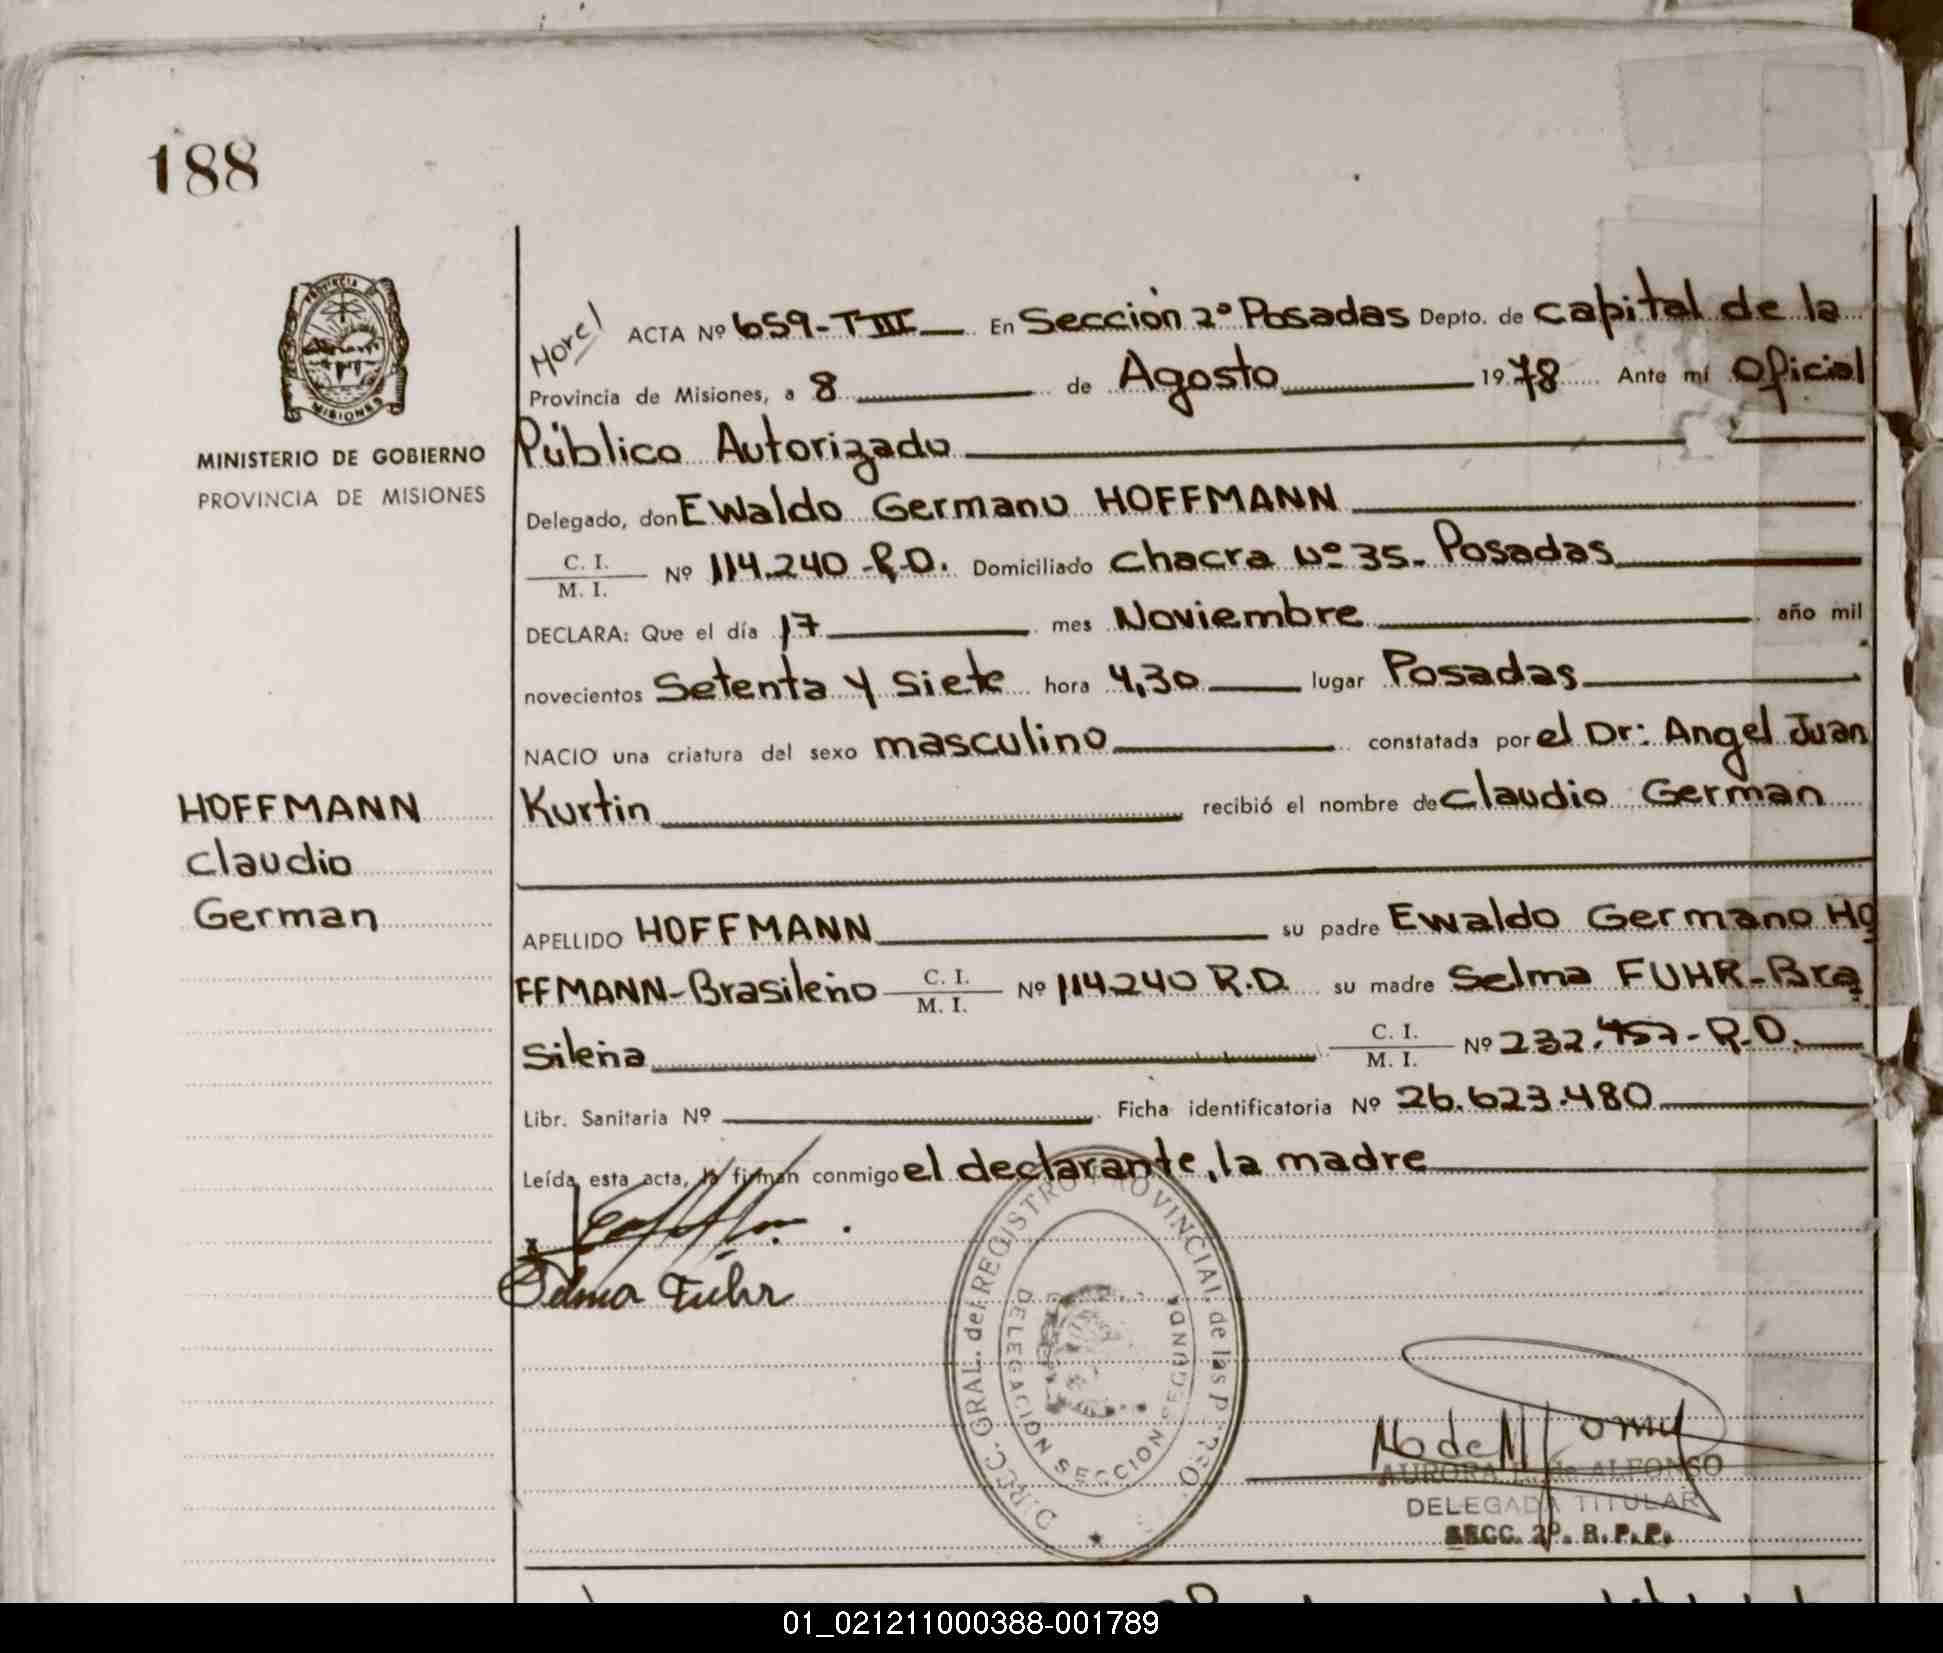 188
PROVINCIA DE
MISIONES
MINISTERIO DE GOBIERNO
PROVINCIA DE MISIONES
HOFFMANN
Claudio
German
ACTA Nº 659-TIII En Sección 2º Posadas Depto. de Capital de la
Provincia de Misiones, a 8 de Agosto 1978 Ante mí Oficial
Público Autorizado
Delegado, don Ewaldo Germano HOFFMANN
C. I.
M. I. Nº 114.240-R.D. Domiciliado Chacra Nº 35- Posadas
DECLARA: Que el día 17 mes Noviembre año mil
novecientos Setenta y Siete hora 4,30 lugar Posadas
NACIO una criatura del sexo masculino constatada por el Dr: Angel Juan
Kurtin recibió el nombre de Claudio German
APELLIDO HOFFMANN su padre Ewaldo Germano HO
FFMANN-Brasileño C. I.
M. I. Nº 114240 R.D. su madre Selma FUHR-Bra
sileña C. I.
M. I. Nº 232.457-R.D.
Libr. Sanitaria Nº Ficha identificatoria Nº 26.623.480
Leída esta acta, la firman conmigo el declarante, la madre
Selma Fuhr
DIRECC. GRAL. del REGISTRO PROVINCIAL de las P
DELEGACION SECCION SEGUNDA
AURORA de ALFONSO
DELEGADA TITULAR
SECC. 2º. R.P.P.
01_021211000388-001789